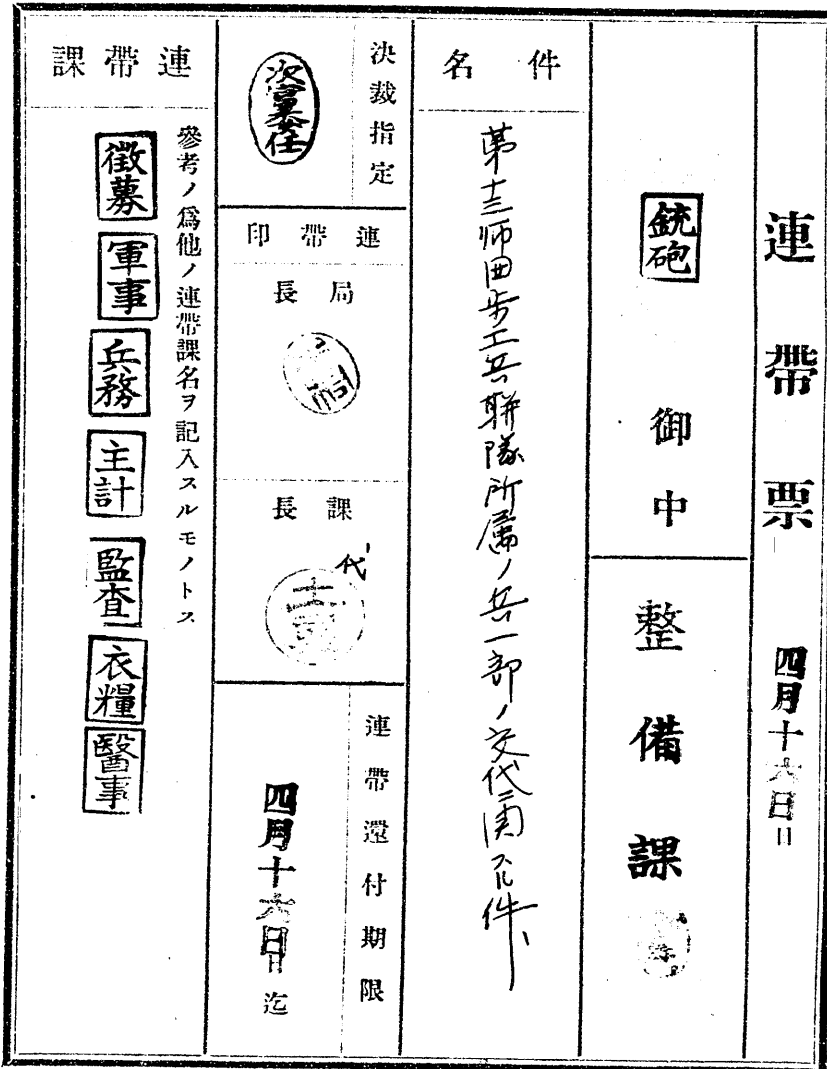 連帶票
四月十六日
銃砲 御中
整備課
件名
第十三師団歩工兵聯隊所属ノ兵一部ノ交代ニ関スル件
決裁指定
次官委任
連帶印
局長
課長
代
連帶還付期限
四月十六日迄
連帶課
參考ノ爲他ノ連帶課名ヲ記入スルモノトス
徵募
軍事
兵務
主計
監査
衣糧
醫事